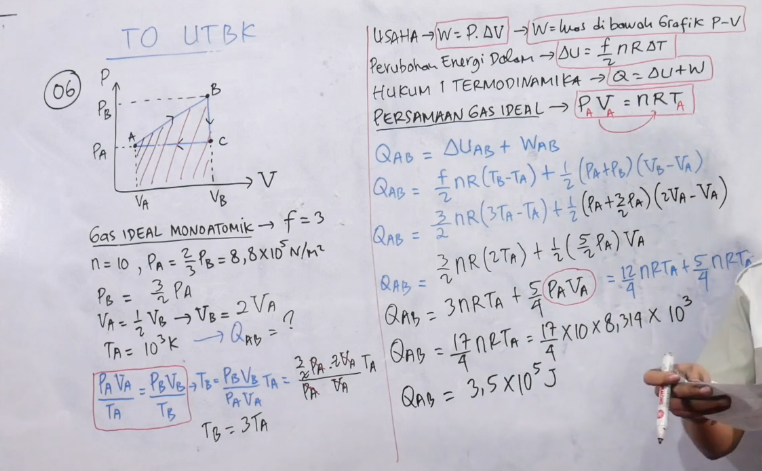 TO UTBK
06
P
P_B
P_A
A
B
C
V_A
V_B
V
Gas IDEAL MONOATOMIK → f = 3
n = 10 , P_A = 2/3 P_B = 8,8 × 10⁵ N/m²
P_B = 3/2 P_A
V_A = 1/2 V_B → V_B = 2 V_A
T_A = 10³ K → Q_AB = ?
P_A V_A / T_A = P_B V_B / T_B → T_B = P_B V_B / P_A V_A T_A = 3/2 P_A . 2V_A / P_A V_A T_A
T_B = 3T_A
USAHA → W = P. ΔV → W = luas di bawah Grafik P-V
Perubahan Energi Dalam → ΔU = f/2 nRΔT
HUKUM 1 TERMODINAMIKA → Q = ΔU + W
PERSAMAAN GAS IDEAL → P_A V_A = nRT_A
Q_AB = ΔU_AB + W_AB
Q_AB = f/2 nR (T_B - T_A) + 1/2 (P_A + P_B) (V_B - V_A)
Q_AB = 3/2 nR (3T_A - T_A) + 1/2 (P_A + 3/2 P_A) (2V_A - V_A)
Q_AB = 3/2 nR (2T_A) + 1/2 (5/2 P_A) V_A
Q_AB = 3nRT_A + 5/4 P_A V_A = 12/4 nRT_A + 5/4 nRT_A
Q_AB = 17/4 nRT_A = 17/4 × 10 × 8,314 × 10³
Q_AB = 3,5 × 10⁵ J